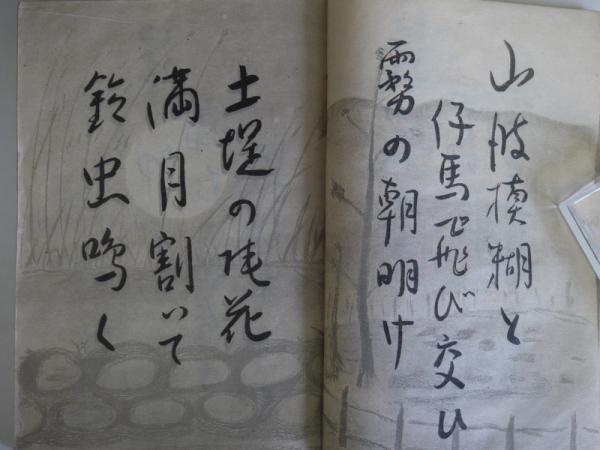 山模糊と
仔馬飛び交ひ
霧の朝明け
土堤の花
満月割いて
鈴虫鳴く